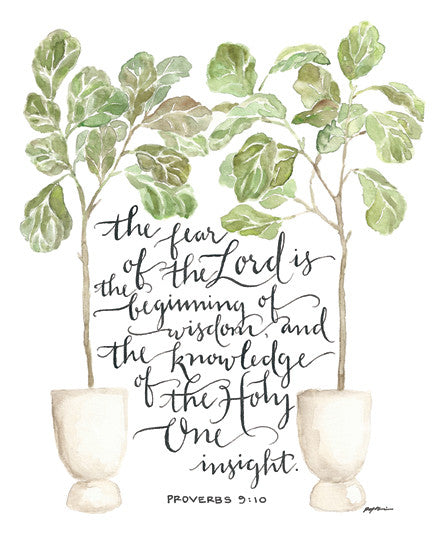 the fear
of the Lord is
the beginning of
wisdom, and
the knowledge
of the Holy
One
insight.
PROVERBS 9:10